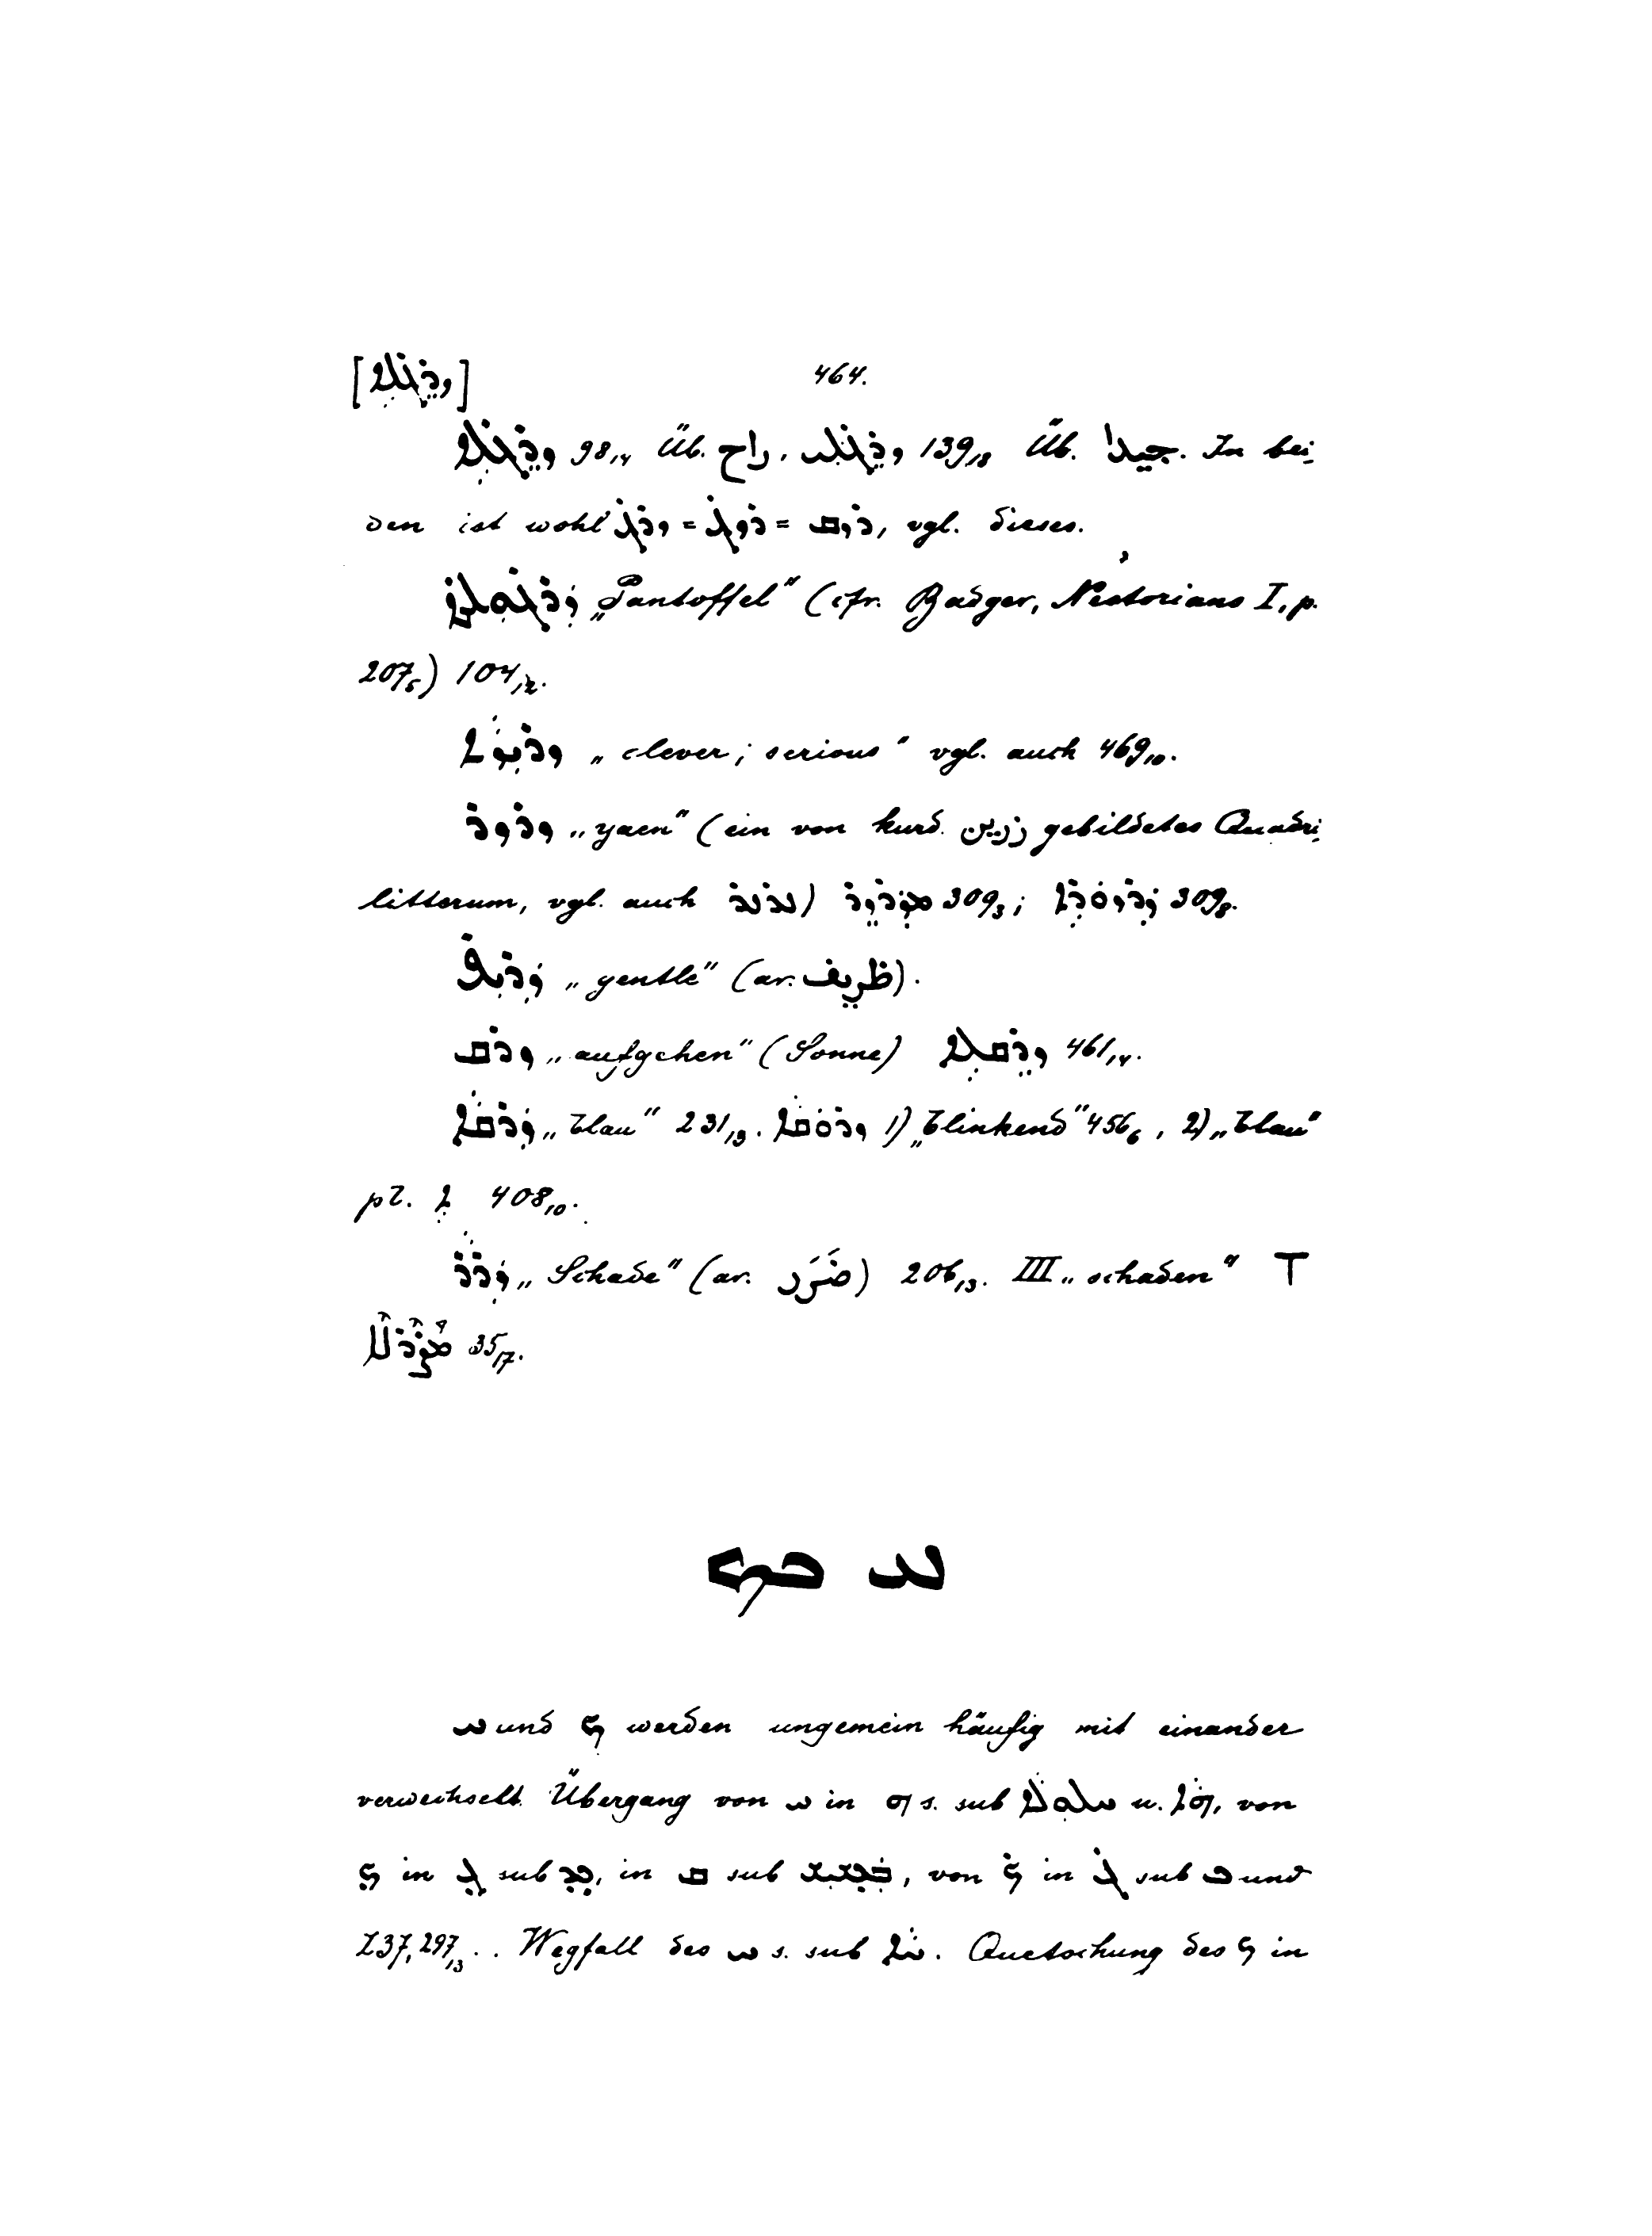 [ܙܪܓܢܠܗ] 464.
ܙܪܓܢܠܗ 98,14 Üb. راح. 139,18 Üb. جيدا. In bei-
den ist wohl ܙܪܓ = ܪܙܓ = ܪܙܩ, vgl. dieses.
„Pantoffel“ (cfr. Badger, Nestorians I, p.
207,5) 104,12.
ܙܪܝܙܐ „clever; serious“ vgl. auch 469,10.
ܙܪܙܪ „yaen“ (ein von kurd. زرين gebildetes Quadri-
litterum, vgl. auch ܥܪܥܪ) ܡܙܪܙܪ 309,3; 309,8.
ܙܪܝܦ „gentle“ (ar. ظريف).
ܙܪܩ „aufgehen“ (Sonne) ܙܪܩܠܗ 461,14.
ܙܪܩܐ „blau“ 231,13. ܙܪܘܩܐ 1) „blinkend“ 456,6, 2) „blau“
pl. ܐ 408,10.
ܙܪܪ „Schade“ (ar. ضَرَر) 206,13. III „schaden“ T
35,17.
ܚܕ ܟܗ
ܚ und ܟ werden ungemein häufig mit einander
verwechselt. Übergang von ܚ in ܗ s. sub u. ܗܐ, von
ܟ in ܓ sub, in ܩ sub, von ܟ in ܓ sub ܒ und
Z37, 297,13.. Wegfall des ܚ s. sub ܚܐ. Quetschung des ܟ in